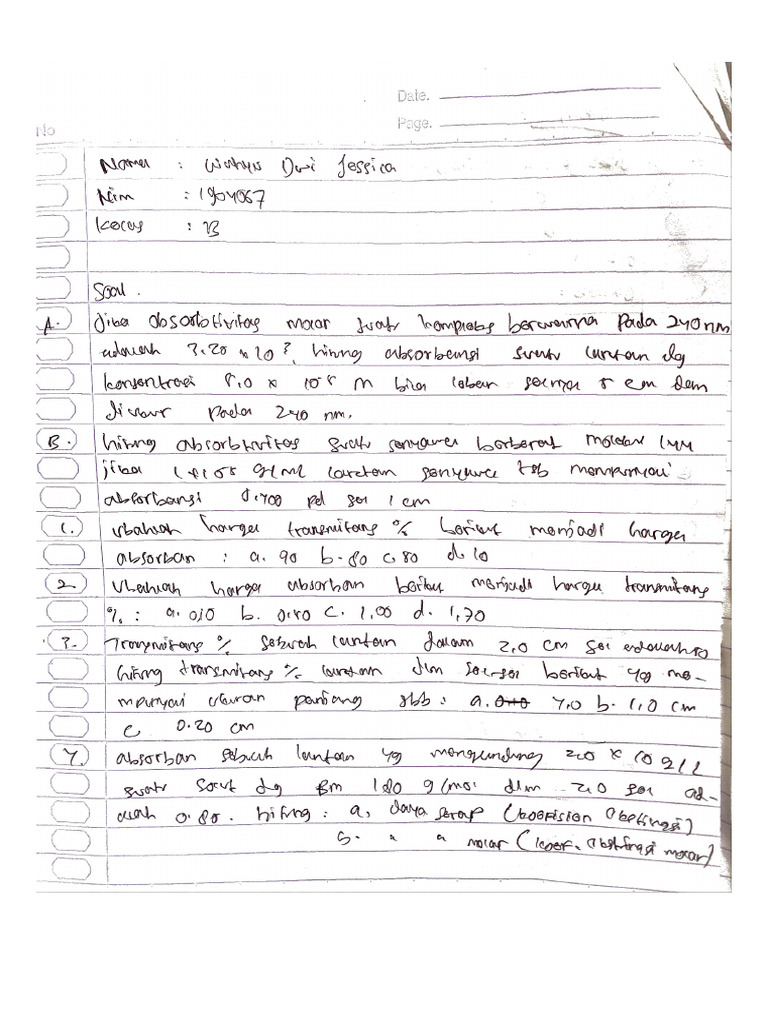 Date.
No
Page.
Nama : Wahyu Dwi Jessica
Nim : 1904067
Kelas : B
Soal .
A. Jika absorbtivitas molar suatu kompleks berwarna pada 240 nm
adalah 3.20 x 10³, hitung absorbansi suatu larutan dg
konsentrasi 5,0 x 10 M bila lebar selnya 5 cm dan
diukur pada 240 nm.
B. hitung absorbtivitas suatu senyawa berberat molekul 144
jika 1 x 10 g/ml larutan senyawa tsb mempunyai
absorbansi 0.400 pd sel 1 cm
1. Ubahlah harga transmitans % berikut menjadi harga
absorban : a. 90 b. 80 c. 80 d. 10
2. Ubahlah harga absorban berikut menjadi harga transmitans
% : a. 010 b. 0.80 c. 1,00 d. 1,70
3. Transmitans % sebuah larutan dalam 2,0 cm sel adalah
hitung transmitans % larutan dlm sel-sel berikut yg me-
mpunyai ukuran panjang sbb : a. 4.0 b. 1,0 cm
c 0.20 cm
4. absorban sebuah larutan yg mengandung 2.0 x 10 g/L
suatu solut dg Bm 180 g/mol dlm 2,0 sel ad-
alah 0.80. hitung : a, daya serap (koefisien absbtivitasi)
b. " " molar (koef. absbtifasi molar)